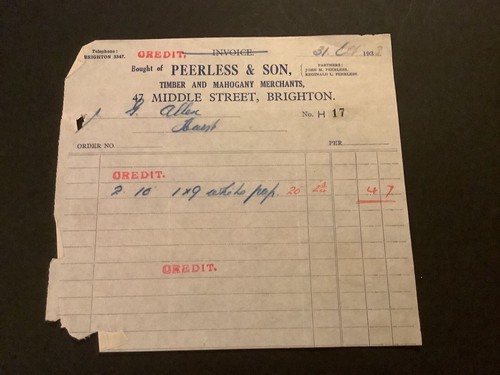 Telephone:
BRIGHTON 2247.
CREDIT. INVOICE.
31 Oct 193
Bought of PEERLESS & SON,
PARTNERS:
JOHN M. PEERLESS.
REGINALD L. PEERLESS.
TIMBER AND MAHOGANY MERCHANTS,
47, MIDDLE STREET, BRIGHTON.
Allen
No. H 17
ORDER NO. PER
CREDIT.
2 10 1x9 white pop. 20 4 7
CREDIT.